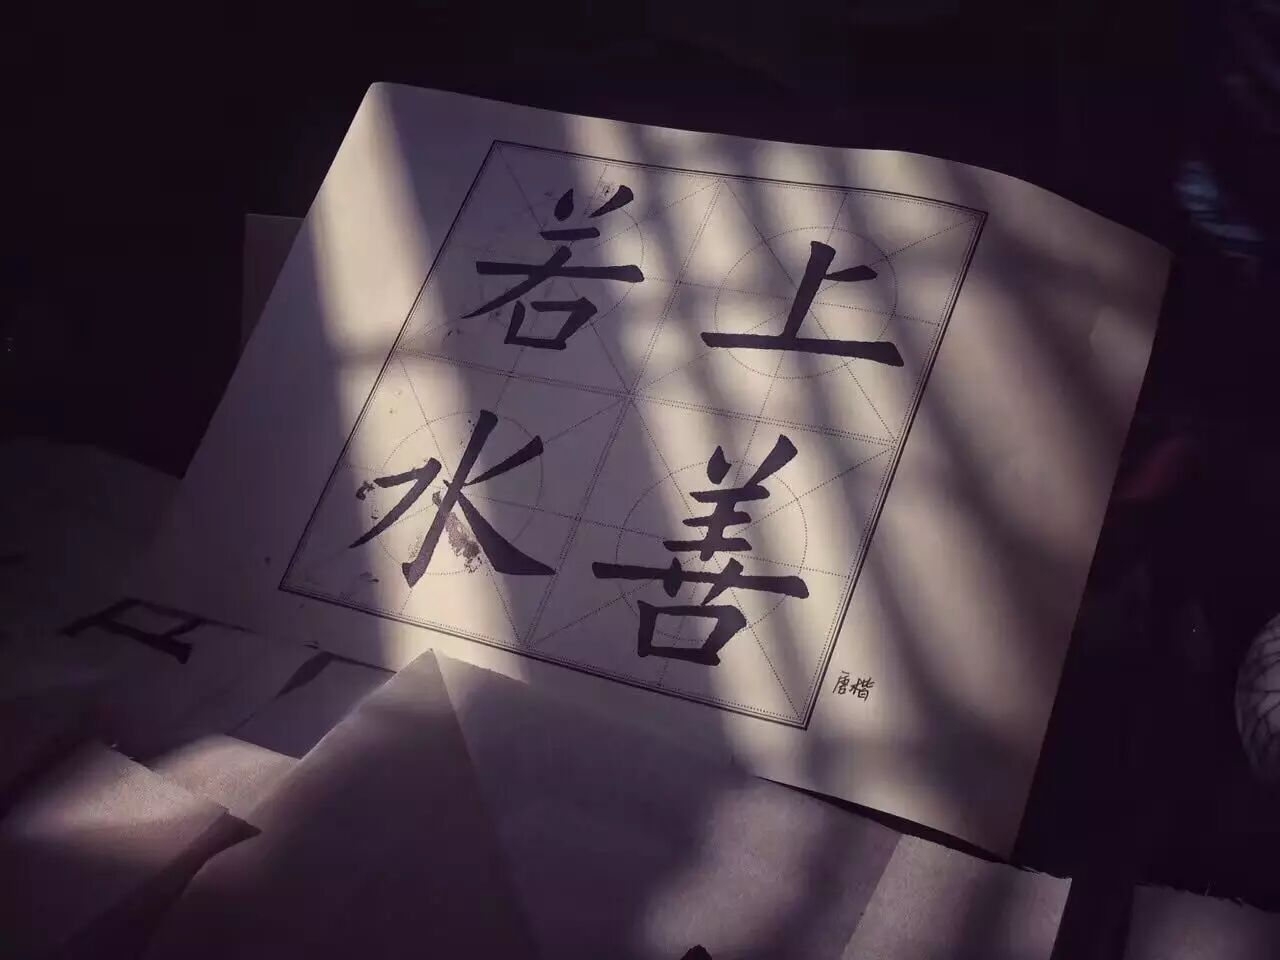 上善
若水
唐楷